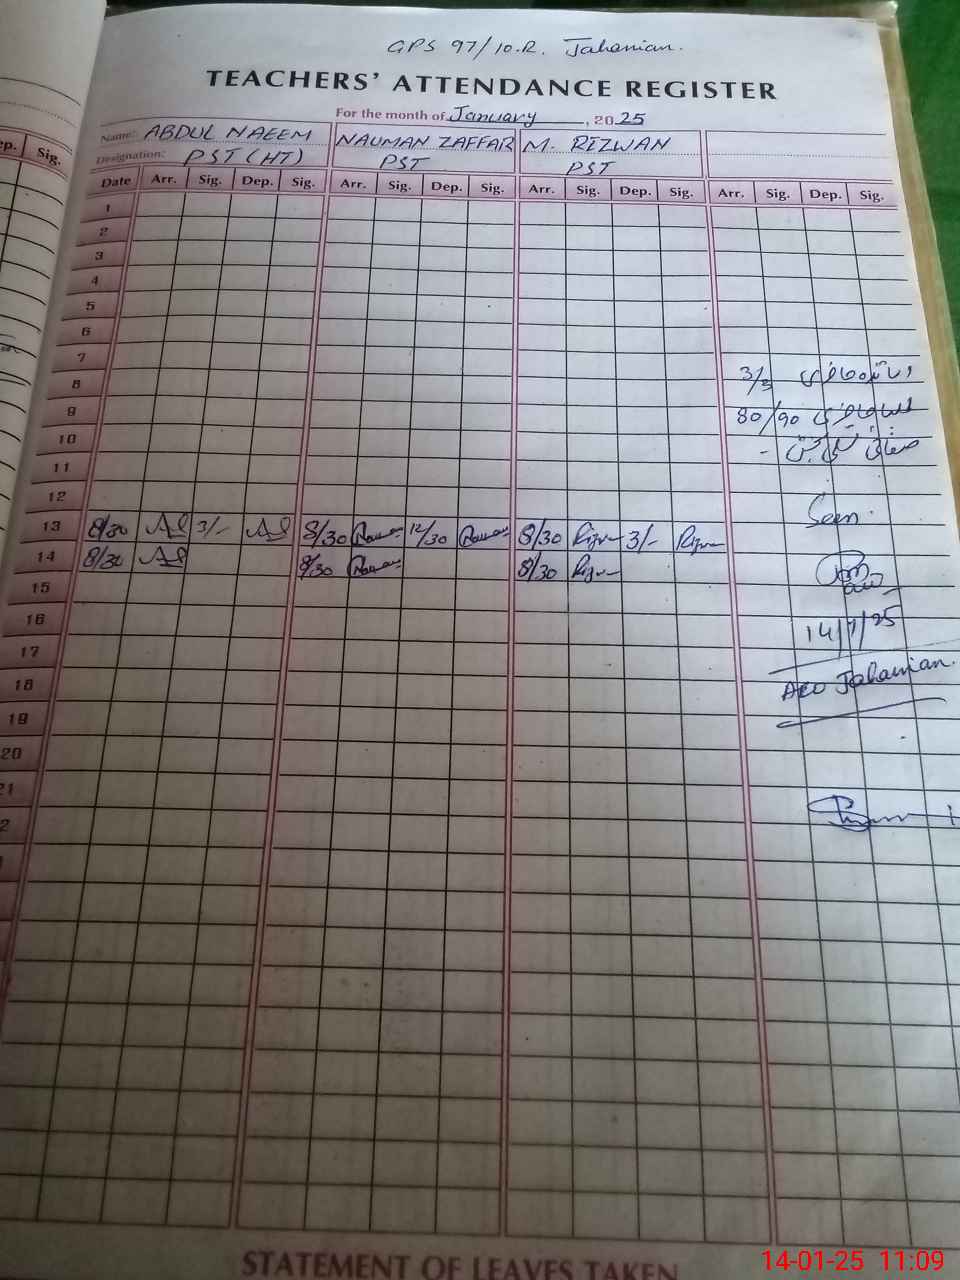 GPS 97/10.R. Jahanian.
TEACHERS' ATTENDANCE REGISTER
For the month of January, 2025
Name: ABDUL NAEEM NAUMAN ZAFFAR M. RIZWAN
Designation: PST (HT) PST PST
ep. Sig.
Date Arr. Sig. Dep. Sig. Arr. Sig. Dep. Sig. Arr. Sig. Dep. Sig. Arr. Sig. Dep. Sig.
1
2
3
4
5
6
7
8 3/3
9 80/90
10
11
12
13 8/30 3/- 8/30 12/30 8/30 3/-
Seen
14 8/30 8/30 8/30
15
16 14/1/25
17
18 AEO Jahanian.
19
20
21
2
STATEMENT OF LEAVES TAKEN
14-01-25 11:09